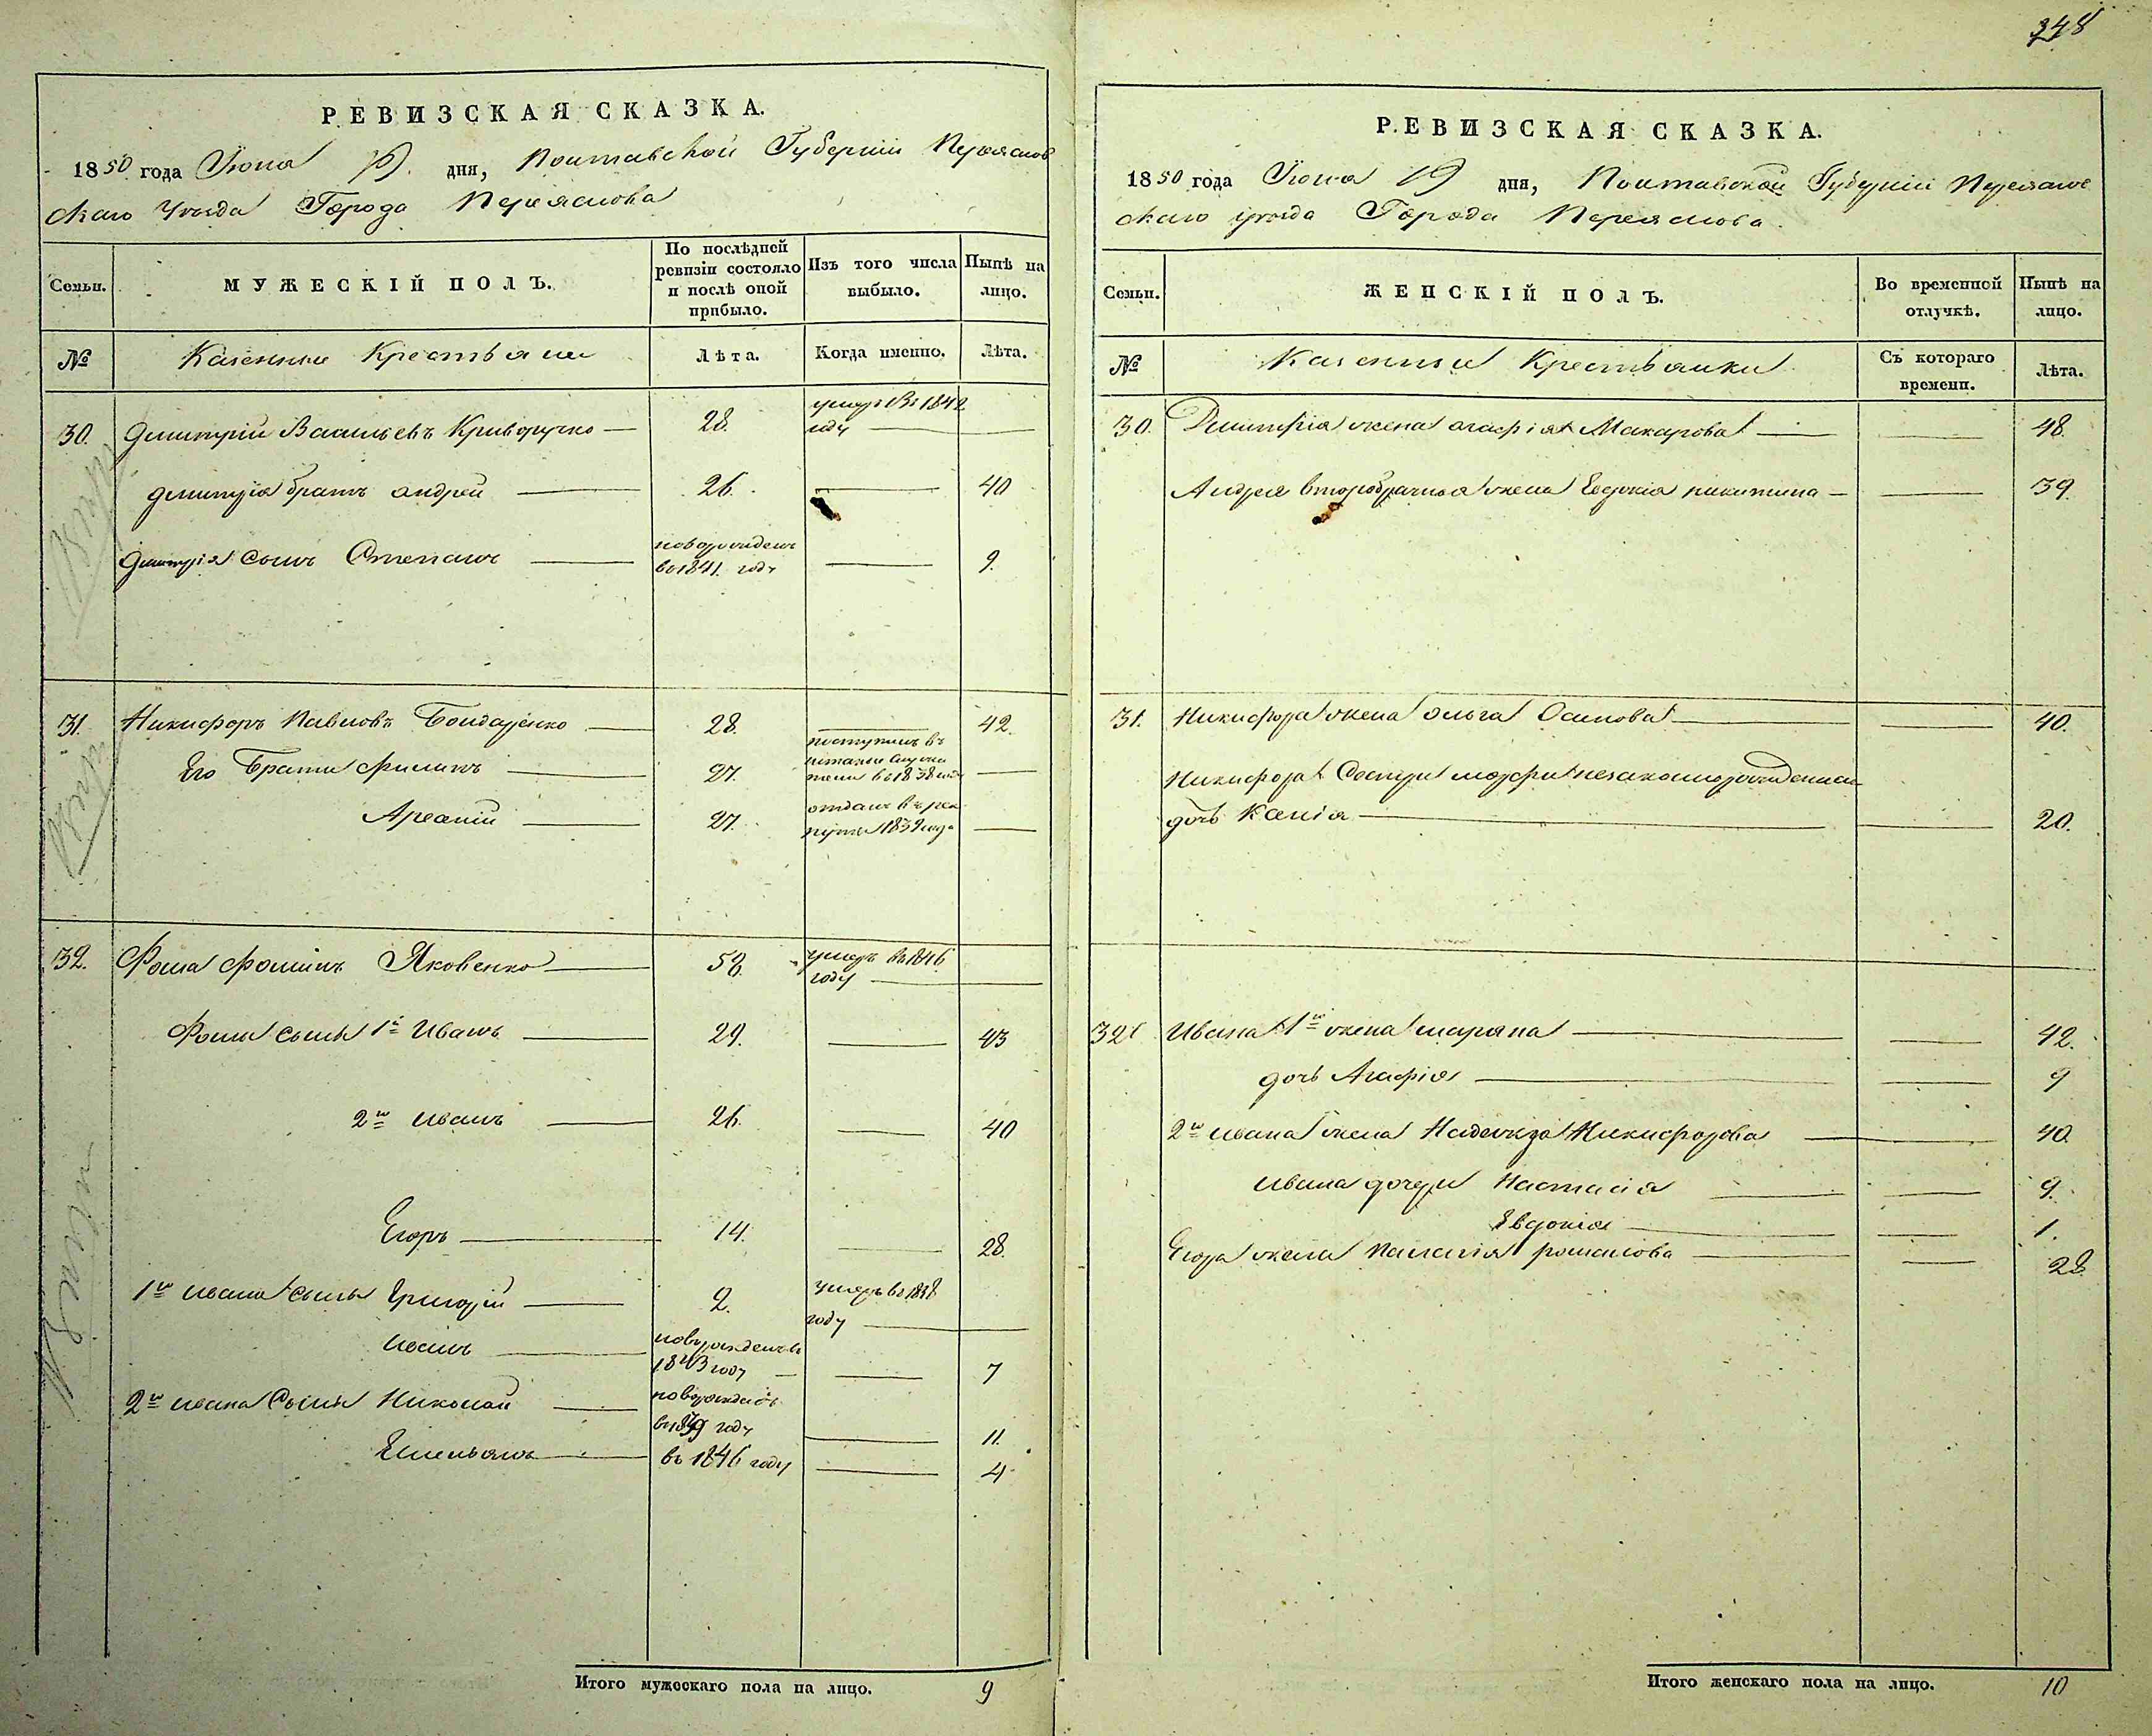 348
РЕВИЗСКАЯ СКАЗКА.
1850 года Іюня 19 дня, Полтавской Губерніи Переяслов
скаго Уѣзда Города Переяслова
Семьи.
МУЖЕСКІЙ ПОЛЪ.
По послѣдней ревизіи состояло и послѣ оной прибыло.
Изъ того числа выбыло.
Нынѣ на лицо.
№
Казенные Крестьяне
Лѣта.
Когда именно.
Лѣта.
30. Дмитрій Васильевъ Криворучко — 28. умеръ въ 1842 году —
Дмитрія братъ Андрей — 26. — 40
Дмитрія сынъ Степанъ — новорожденъ въ 1841 году — 9.
31. Никифоръ Павловъ Бондаренко — 28. — 42.
Его Братья Филипъ — 27. поступилъ въ 1838 —
Арсеній — 27. отданъ въ рекруты 1839 года —
32. Фома Фоминъ Яковенко — 58. умеръ въ 1846 году —
Фомы сыны 1й Иванъ — 29. — 43
2й Иванъ — 26. — 40
Егоръ — 14. — 28.
1го Ивана сыны Григорій — 2. умеръ в 1838 году —
Иванъ — новорожденъ в 1843 году — 7
2го Ивана Сыны Николай — новорожденъ въ 1839 году — 11.
Емельянъ — въ 1846 году — 4
Итого мужескаго пола на лицо. 9
РЕВИЗСКАЯ СКАЗКА.
1850 года Іюня 19 дня, Полтавской Губерніи Переяслов
скаго уѣзда Города Переяслова.
Семьи.
ЖЕНСКІЙ ПОЛЪ.
Во временной отлучкѣ.
Нынѣ на лицо.
№
Казенные Крестьянки
Съ котораго времени.
Лѣта.
30. Дмитрія жена Агафія Макарова — — 48.
Андрея второбрачная жена Евдокія Никитина — — 39.
31. Никифора жена Ольга Осипова — — 40.
Никифора Сестры незаконнорожденная
дочь Ксенія — — 20.
32 Ивана 1го жена Маряна — — 42.
дочь Агафія — — 9
2го Ивана жена Надежда Никифорова — — 40.
Ивана дочери Настасія — — 9.
Евдокія — — 1.
Егора жена Палагія Романова — — 28
Итого женскаго пола на лицо. 10